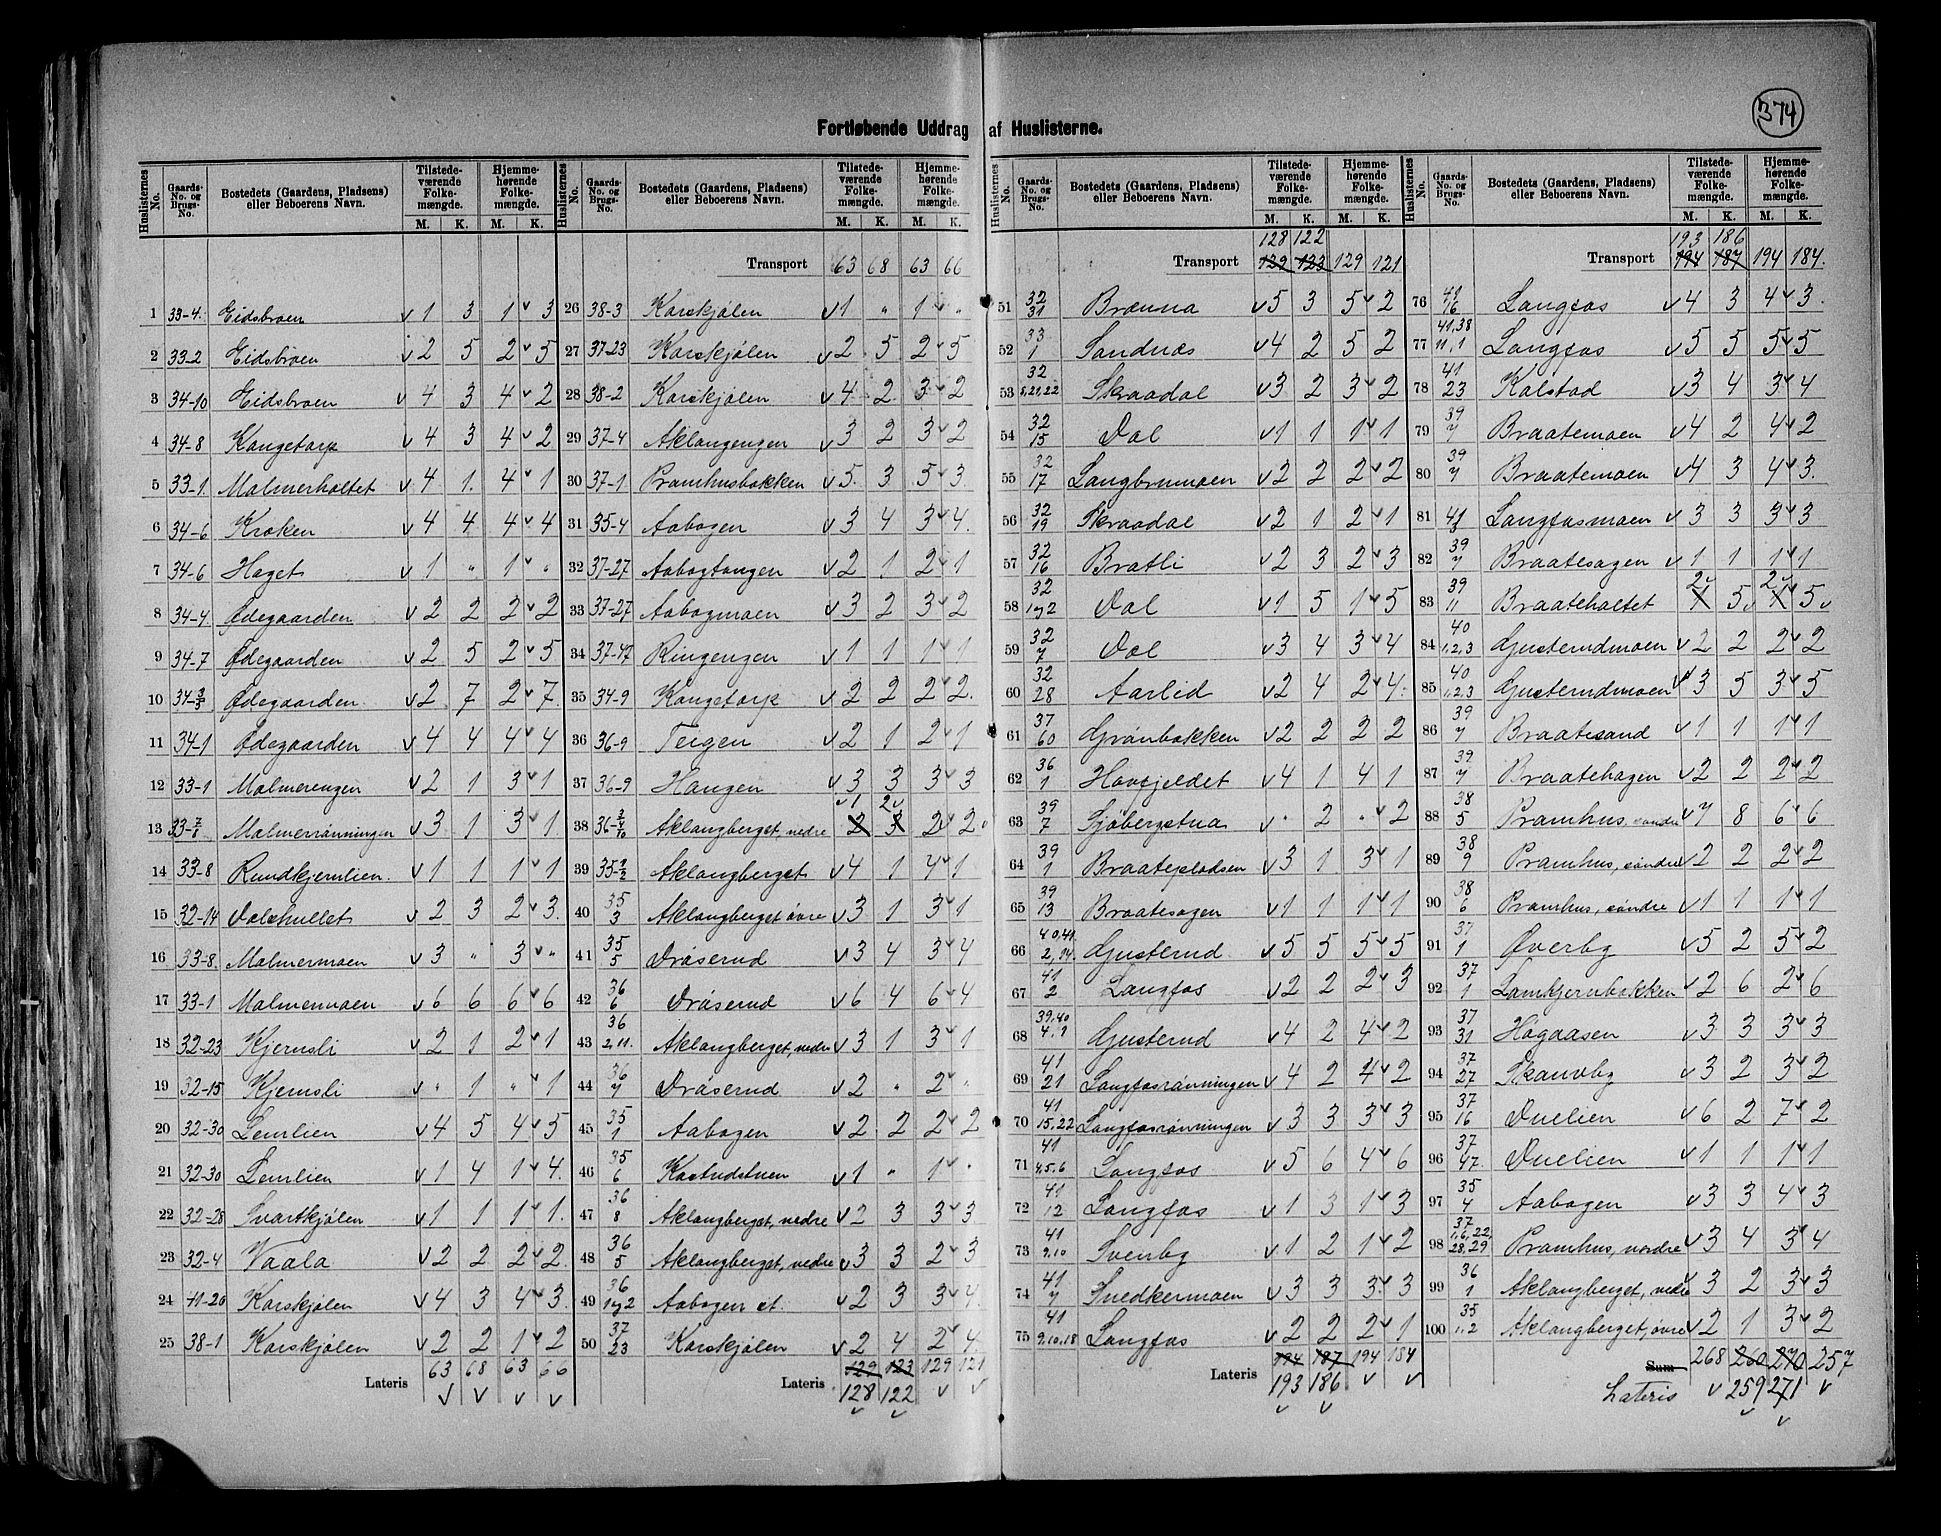 374
Fortløbende Uddrag af Huslisterne.
Huslisternes No. | Gaards-No. og Brugs-No. | Bostedets (Gaardens, Pladsens) eller Beboerens Navn. | Tilstedeværende Folkemængde. M. K. | Hjemmehørende Folkemængde. M. K.
1 33-4. Eidsbroen v 1 3 1 v 3
2 33-2 Eidsbroen v 2 5 2 v 5
3 34-10 Eidsbroen v 4 3 4 v 2
4 34-8 Kongetorp v 4 3 4 v 2
5 33-1. Malmerholtet v 4 1. 4 v 1
6 34-6 Kroken v 4 4 4 v 4
7 34-6 Haget v 1 " 1 v "
8 34-4 Ødegaarden v 2 2 2 v 2
9 34-7 Ødegaarden v 2 5 2 v 5
10 Ødegaarden v 2 7 2 v 7
11 34-1 Ødegaarden v 4 4 4 v 4
12 33-1 Malmerengen v 2 1 3 v 1
13 Malmerrönningen v 3 1 3 v 1
14 33-8 Rundkjernlien. v 1 1 1 v 1
15 32-14 Dalshullet v 2 3 2 v 3.
16 33-8. Malmermoen v 3 " 3 v "
17 33-1 Malmermoen v 6 6 6 v 6
18 32-23 Kjernsli v 2 1 2 v 1
19 32-15 Kjernsli v " 1 " v 1
20 32-30 Lemlien v 4 5 4 v 5
21 32-30 Lemlien v 1 4 1 v 4.
22 32-28 Svartkjölen v 1 1 1 v 1.
23 32-4 Vaala v 2 2 2 v 2.
24 11-20 Korskjölen v 4 3 4 v 3.
25 38-1 Korskjölen v 2 2 1 v 2
Lateris 63 68 63 66
v v v v
Huslisternes No. | Gaards-No. og Brugs-No. | Bostedets (Gaardens, Pladsens) eller Beboerens Navn. | Tilstedeværende Folkemængde. M. K. | Hjemmehørende Folkemængde. M. K.
Transport 63 68 63 66
26 38-3 Korskjölen v 1 " 1 v "
27 37-23 Korskjölen v 2 5 2 v 5
28 38-2 Korskjölen v 4 2 3 v 2
29 37-4 Aklangengen v 3 2 3 v 2
30 37-1 Pramhusbakken v 5. 3 5 v 3
31 35-4 Aabogen v 3 4 3 v 4.
32 37-27 Aabogtangen v 2 1 2 v 1
33 37-27 Aabogmoen v 3 2 3 v 2
34 37-47 Ringengen v 1 1 1 v 1
35 34-9 Kongetorp v 2 2 2 v 2.
36 36-9 Teigen v 2 1 2 v 1
37 36-9 Haugen v 3 3 3 v 3
v 1 2 v
38 Aklangberget, nedre 2 3 2 v 2
39 Aklangberget v 4 1 4 v 1
40 35 3 Aklangberget övre v 3 1 3 v 1
41 35 5 Dråserud v 3 4 3 v 4
42 36 6 Dråserud v 6 4 6 v 4
43 36 2,11. Aklangberget, nedre v 3 1 3 v 1
44 36 7 Dråserud v 2 " 2 v "
45 35 1 Aabogen v 2 2 2 v 2
46 35 6 v 1 " 1 v "
47 36 8 Aklangberget, nedre v 2 3 3 v 3
48 36 5 Aklangberget, nedre v 3 3 2 v 3
49 36 1 og 2 Aabogen st. v 2 3 3 v 4.
50 37 23 Korskjölen v 2 4 2 v 4.
129 123 129 121
Lateris 128 122 v v
v v
Huslisternes No. | Gaards-No. og Brugs-No. | Bostedets (Gaardens, Pladsens) eller Beboerens Navn. | Tilstedeværende Folkemængde. M. K. | Hjemmehørende Folkemængde. M. K.
128 122
Transport 129 123 129 121
51 32 31 Brænna v 5 3 5 v 2
52 33 1 Sandnæs v 4 2 5 2
53 32 21,22 Skraadal v 3 2 3 v 2
54 32 15 Dal v 1 1 1 v 1
55 32 17 Langbrumoen v 2 2 2 v 2
56 32 19 Skraadal v 2 1 2 v 1
57 32 16 Bratli v 2 3 2 v 3
58 32 1 og 2 Dal v 1 5 1 v 5
59 32 7 Dal v 3 4 3 v 4
60 32 28 Aarlid v 2 4 2 v 4.
61 37 60 Grönbakken v 2 2 2 2
62 36 1 Havfjeldet v 4 1 4 1
63 39 7 Sjöbergstua v " 2 " v 2
64 39 1 Braatepladsen v 3 1 3 v 1
65 39 13 Braatesagen v 1 1 1 v 1
66 40,41. 2,14. Gusterud v 5 5 5 v 5
67 41 2 Langfos v 2 2 2 v 3
68 39,40 4,1 Gusterud v 4 2 4 v 2
69 41 21 Langfosrönningen v 4 2 4 v 2
70 41 15,22 Langfosrönningen v 3 3 3 v 3
71 41 4,5,6 Langfos v 5 6 4 v 6
72 41 12 Langfos v 1 3 1 v 3
73 41 9.10 Svenby v 1 2 1 v 2
74 41 7 Snedkermoen v 3 3 3 v 3
75 41 9.10.18 Langfos v 2 2 2 v 1
194 187 194 184
Lateris 193 186 v v
v v
Huslisternes No. | Gaards-No. og Brugs-No. | Bostedets (Gaardens, Pladsens) eller Beboerens Navn. | Tilstedeværende Folkemængde. M. K. | Hjemmehørende Folkemængde. M. K.
193 186
Transport 194 187 194 184.
76 41 16 Langfos v 4 3 4 v 3.
77 41,38 11,1 Langfos v 5 5 5 v 5
78 41 23 Kalstad v 3 4 3 v 4
79 39 7 Braatemoen v 4 2 4 v 2
80 39 7 Braatemoen v 4 3 4 v 3.
81 41 3 Langfosmoen v 3 3 3 v 3
82 39 7 Braatesagen v 1 1 1 v 1
2 v 2 v
83 39 11 Braateholtet 1 5 v 1 5 v
84 40 1,2,3 Gusterudmoen v 2 2 2 v 2
85 40 1,2,3 Gusterudmoen v 3 5 3 v 5
86 39 7 Braatesand v 1 1 1 v 1
87 39 7 Braatehagen v 2 2 2 v 2
88 38 5 Pramhus, söndre v 7 8 6 v 6
89 38 9 Pramhus, söndre v 2 2 2 v 2
90 38 6 Pramhus, söndre v 1 1 1 v 1
91 37 1 Øverby v 5 2 5 v 2
92 37 1 Lamkjernbakken v 2 6 2 v 6
93 37 31 Högaasen v 3 3 3 v 3
94 37 27 Skanvby v 3 2 3 v 2
95 37 16 Duelien v 6 2 7 v 2
96 37 47. Duelien v 1 1 1 v 1
97 35 4 Aabogen v 3 3 4 v 3
98 37 1,6,22, 28,29 Pramhus, nordre v 3 4 3 v 4
99 36 1 Aklangberget, nedre v 3 2 3 v 3
100 35 1,2 Aklangberget, övre v 2 1 3 v 2
Sum 268 260 270 257
Lateris v 259 271 v
v v